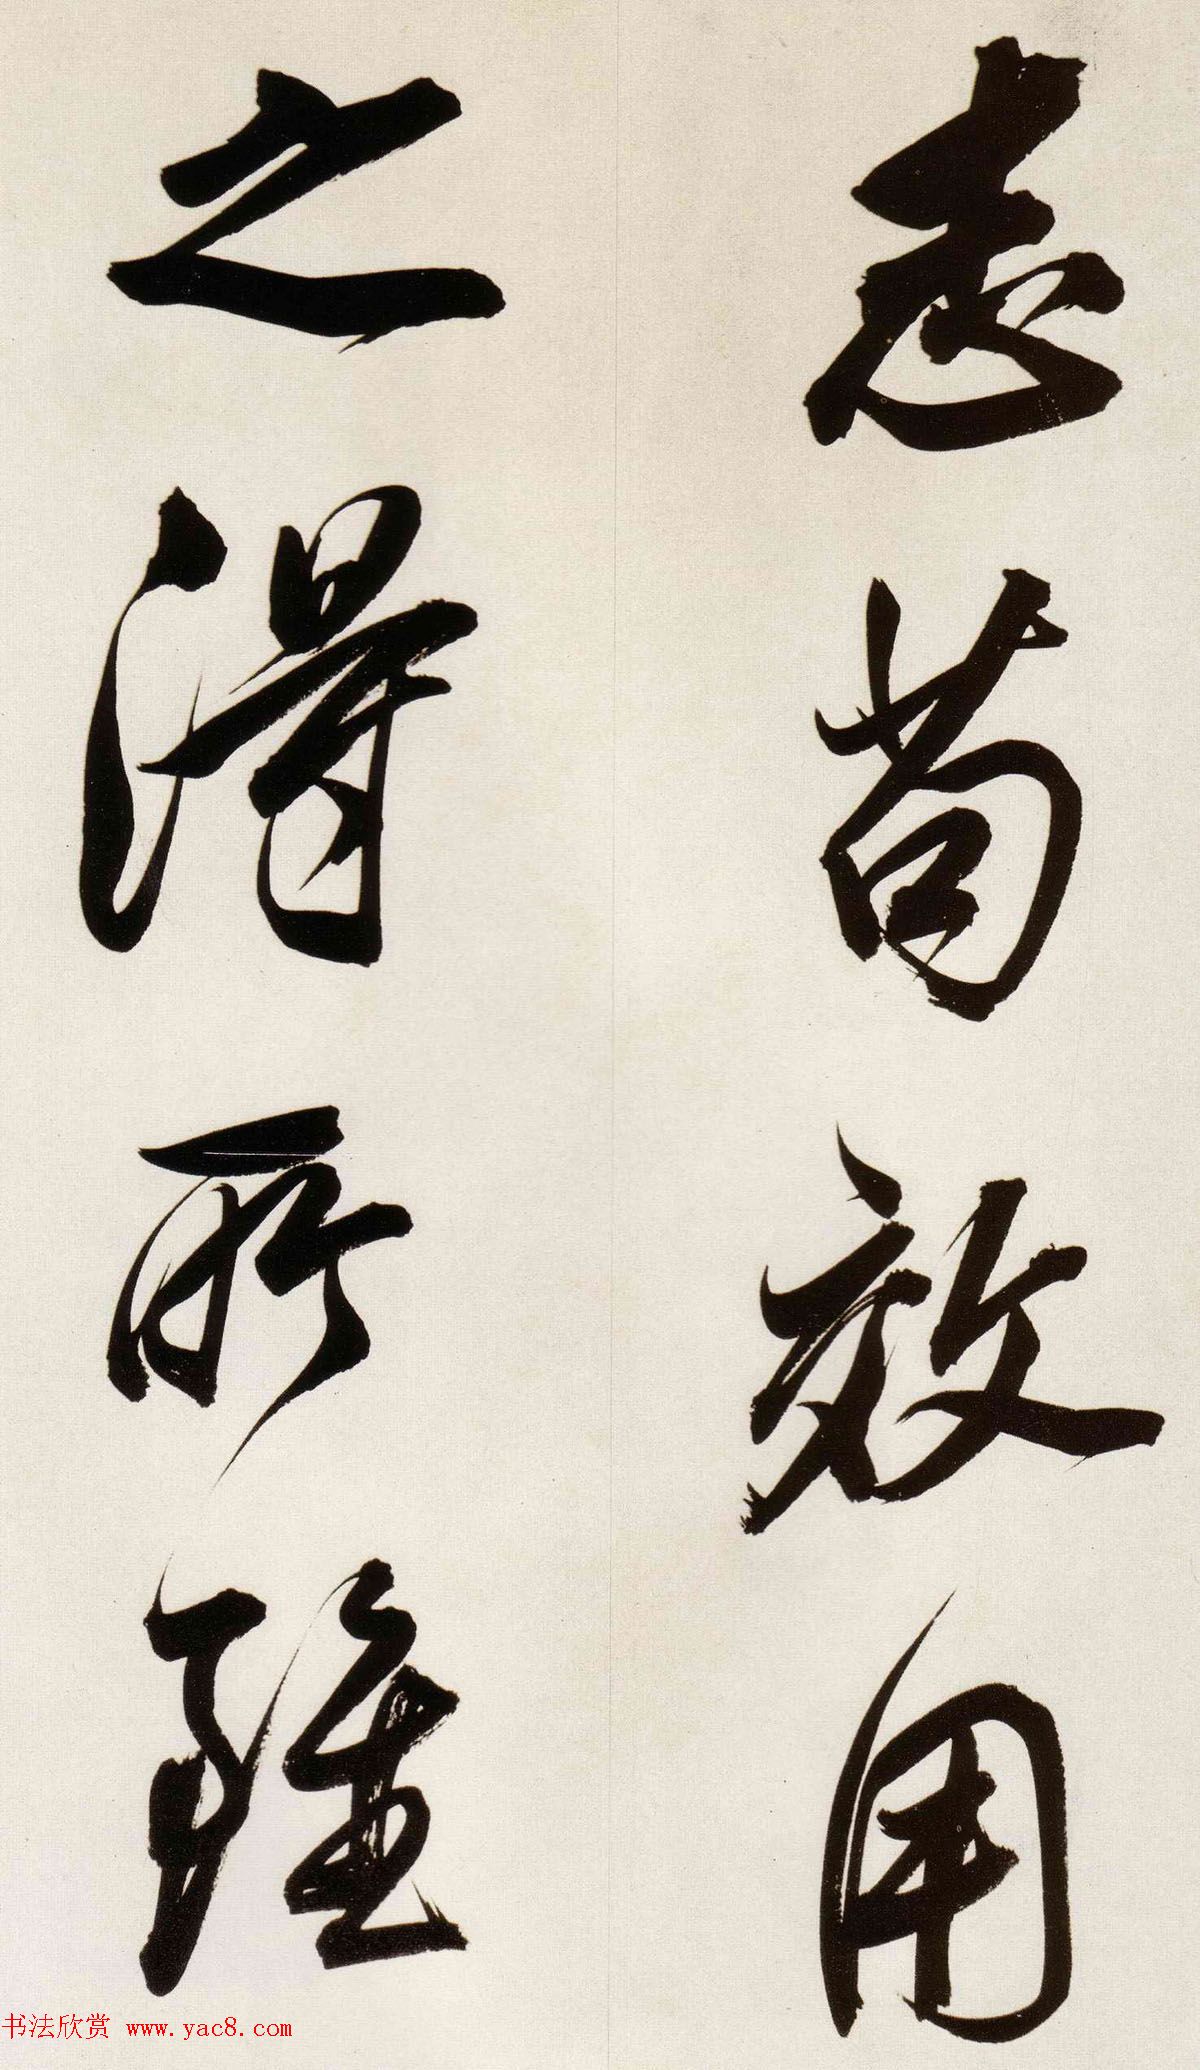 志苟效用
之得所雖
书法欣赏 www.yac8.com